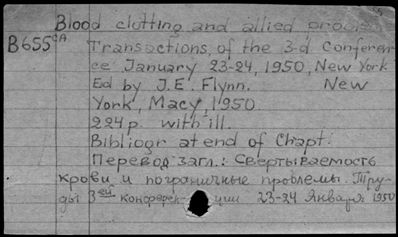 Blood clotting and allied
B655 CA Transactions, of the 3-d Conferen-
ce January 23-24, 1950, New York
Ed by J.E. Flynn. New
York, Macy, 1950.
224 p. with ill.
Bibliogr at end of Chapt.
Перевод загл.: Свертываемость
крови и пограничные проблемы. Тру-
ды 3ей конферен-ции 23-24 Января 1950